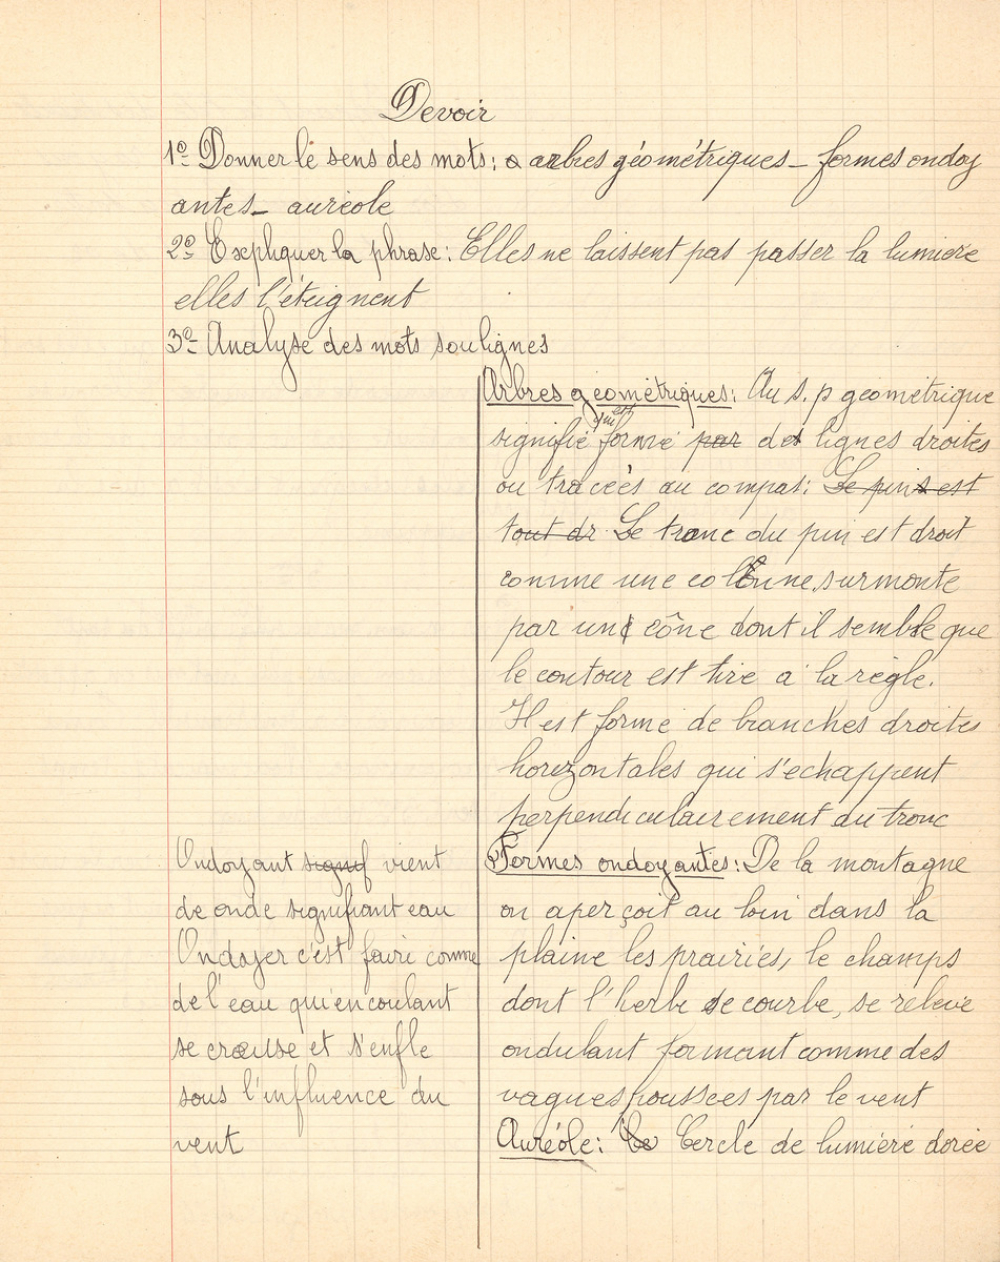 Devoir
1º Donner le sens des mots: arbres géométriques - formes ondoy
antes - auréole
2º Expliquer la phrase: Elles ne laissent pas passer la lumière
elles l'éteignent
3º Analyse des mots soulignes
Arbres géométriques: Au s. p géométrique
signifie qui est formé par des lignes droites
ou tracées au compas: Le pin est
tout dr Le tronc du pin est droit
comme une colonne, surmonte
par un cône dont il semble que
le contour est tiré a la règle.
Il est forme de branches droites
horizontales qui s'echappent
perpendiculairement au tronc
Ondoyant signif vient
de onde signifiant eau
Ondoyer c'est faire comme
de l'eau qui en coulant
se creuse et s'enfle
sous l'influence du
vent
Formes ondoyantes: De la montagne
on aperçoit au loin dans la
plaine les prairies, le champs
dont l'herbe se courbe, se relève
ondulant formant comme des
vagues poussées par le vent
Auréole: Cercle de lumière dorée